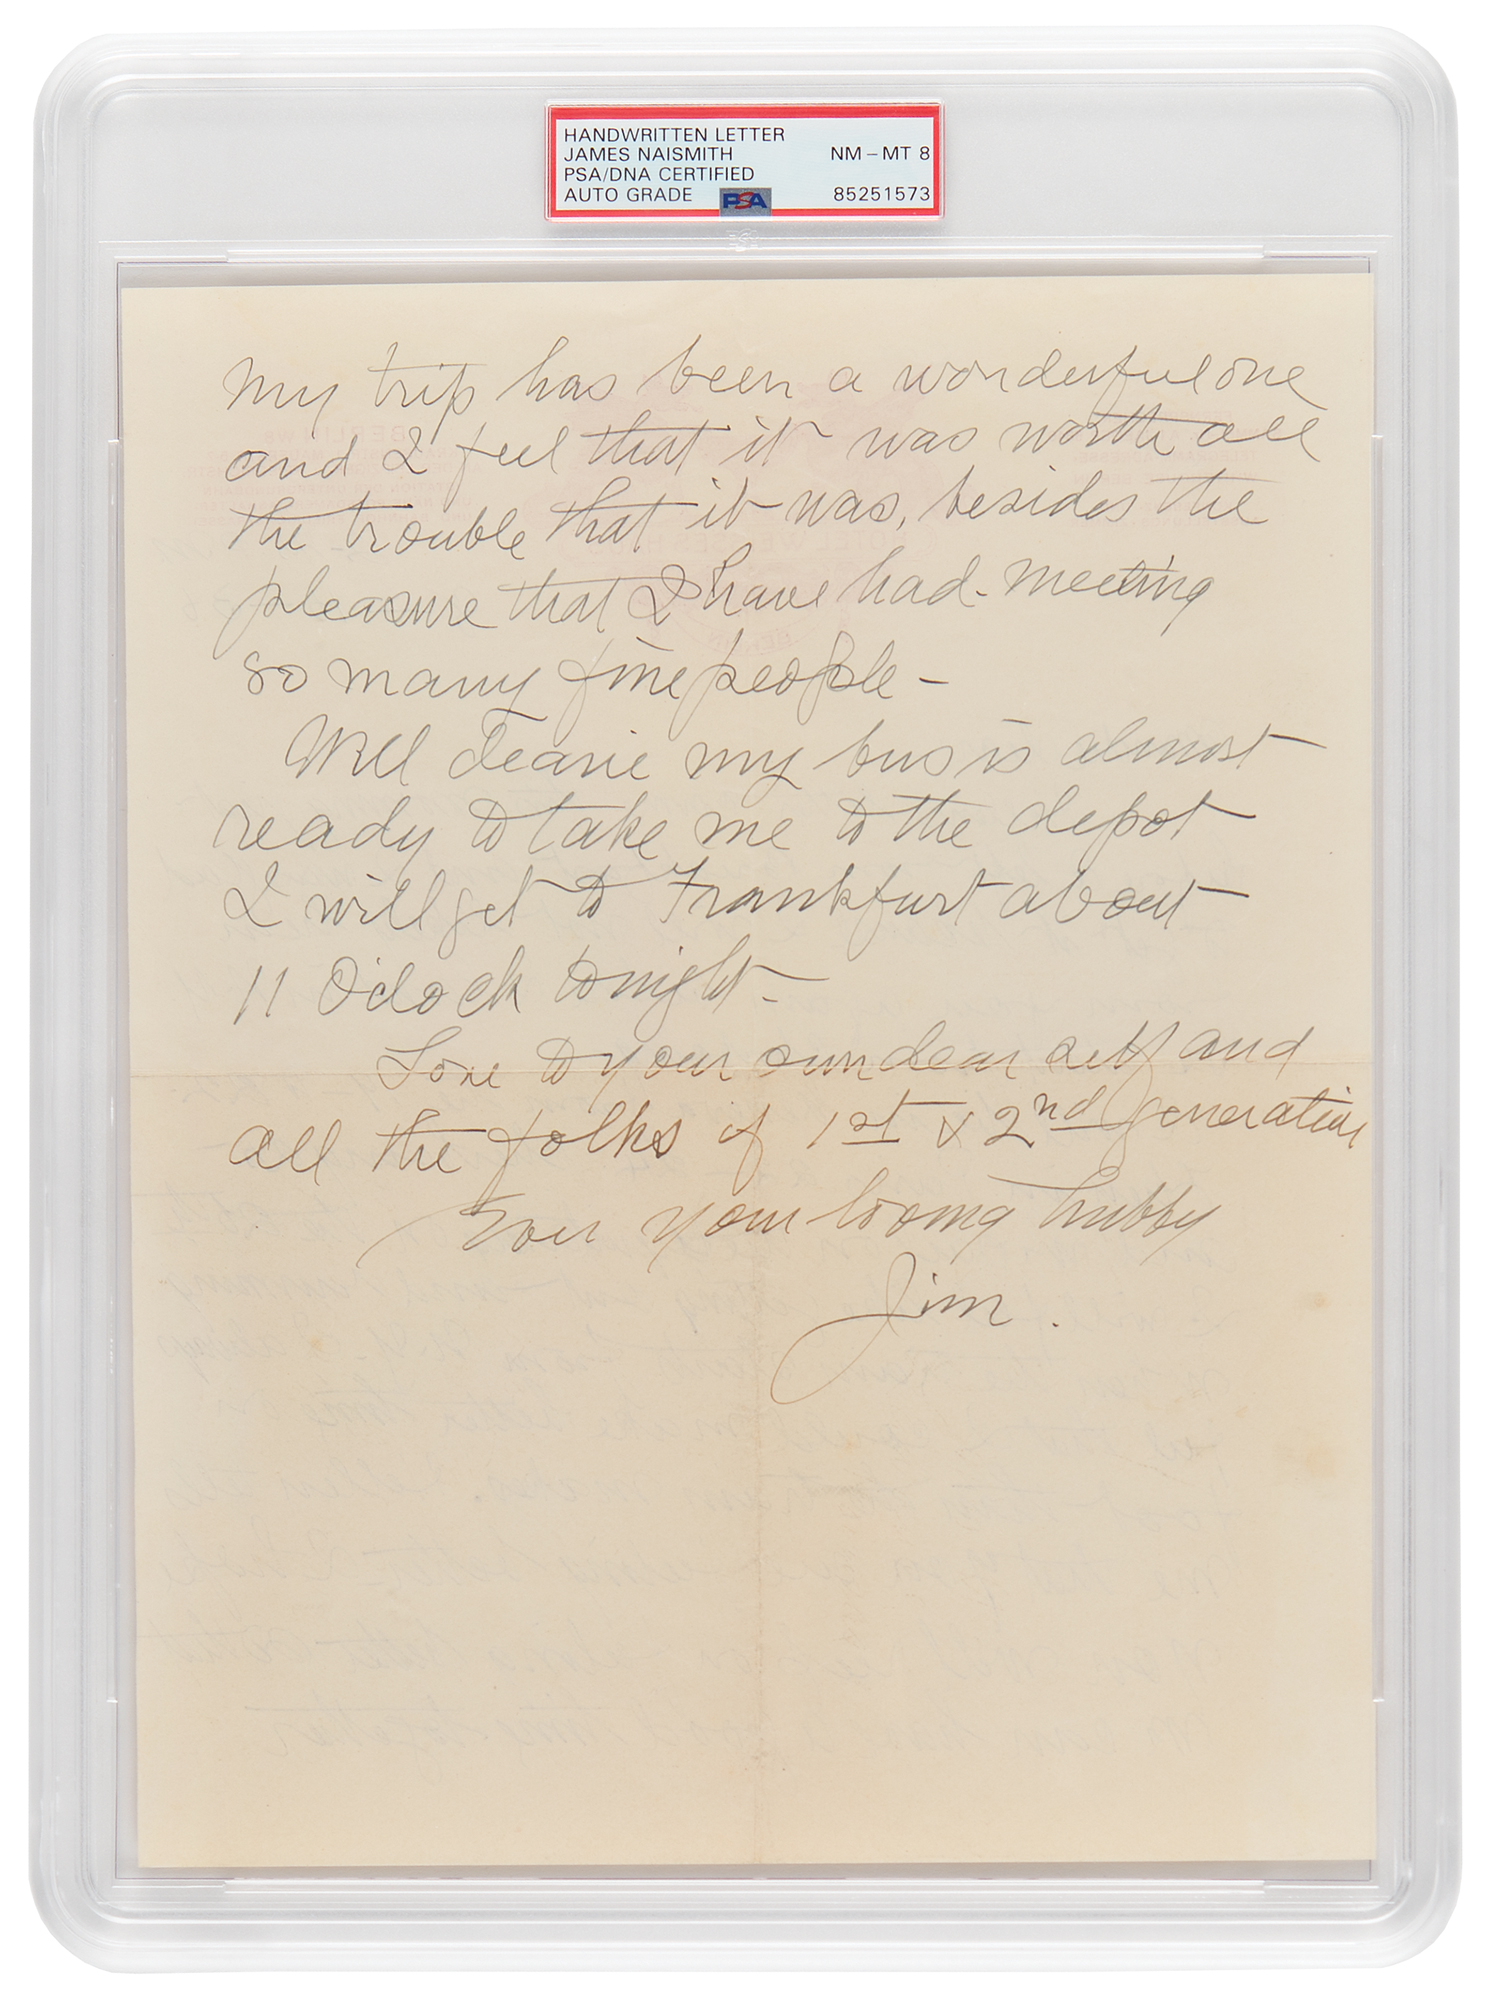 HANDWRITTEN LETTER
JAMES NAISMITH NM-MT 8
PSA/DNA CERTIFIED
AUTO GRADE PSA 85251573
My trip has been a wonderful one
and I feel that it was worth all
the trouble that it was, besides the
pleasure that I have had - meeting
so many fine people -
Well Dearie my bus is almost
ready to take me to the depot
I will get to Frankfurt about
11 O'clock tonight -
Love to your own dear self and
all the folks of 1st & 2nd generation
Ever your loving hubby
Jim.